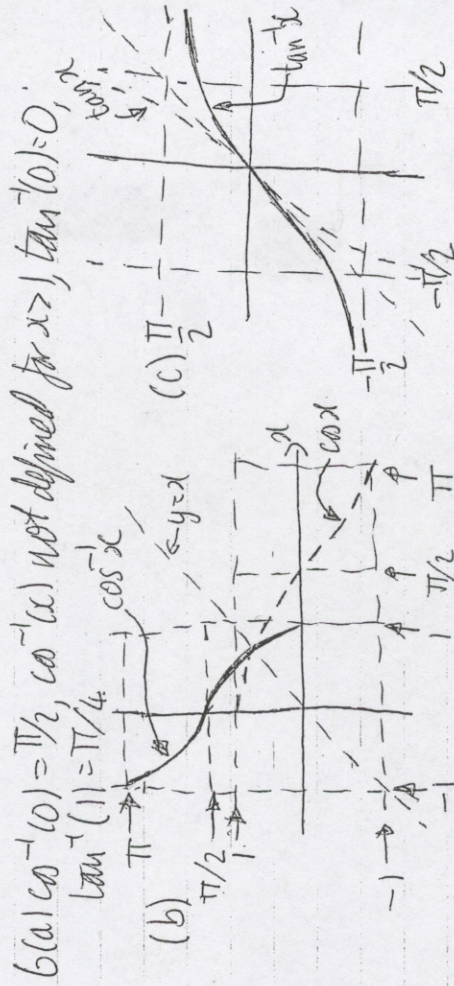 6(a) cos⁻¹(0) = π/2, cos⁻¹(x) not defined for x>1, tan⁻¹(0)=0,
tan⁻¹(1) = π/4.
(b)
cos⁻¹x
y=x
π
π/2
1
-1
x
cosx
-1
1
π/2
π
(c)
π/2
-π/2
tan x
tan⁻¹x
-π/2
π/2